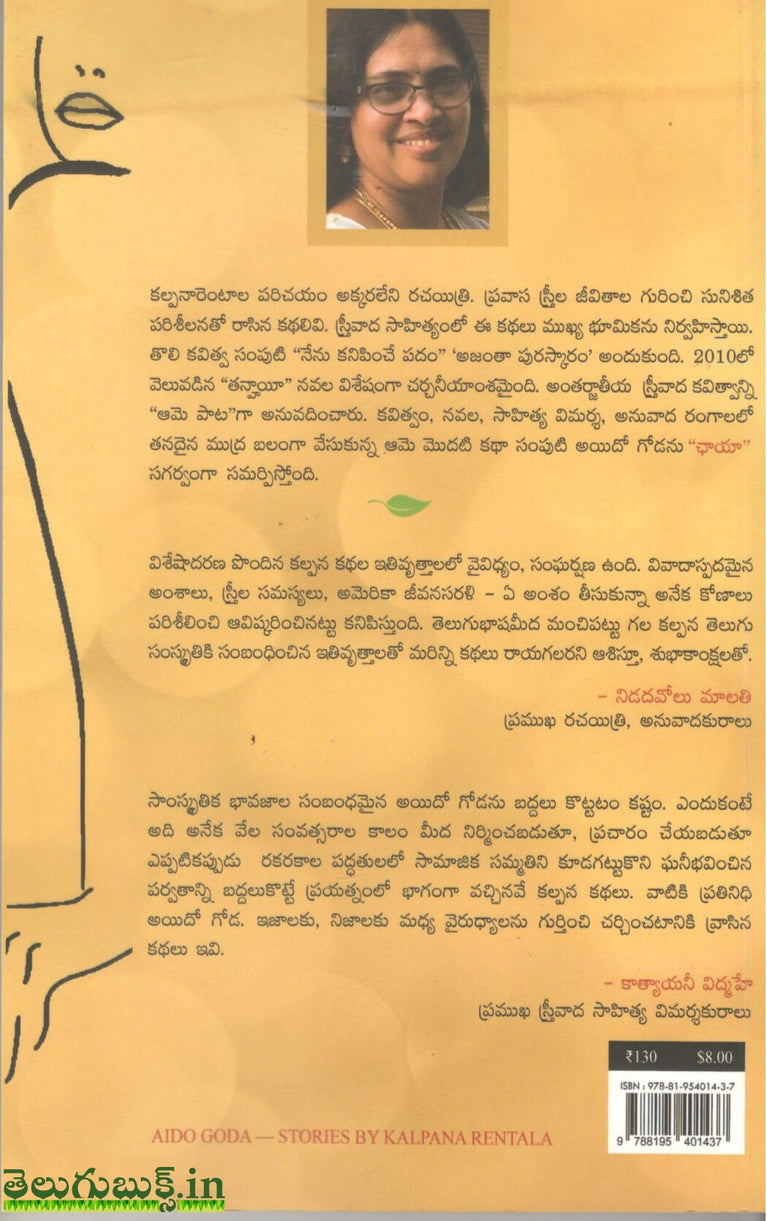 కల్పనారెంటాల పరిచయం అక్కరలేని రచయిత్రి. ప్రవాస స్త్రీల జీవితాల గురించి సునిశిత
పరిశీలనతో రాసిన కథలివి. స్త్రీవాద సాహిత్యంలో ఈ కథలు ముఖ్య భూమికను నిర్వహిస్తాయి.
తొలి కవిత్వ సంపుటి “నేను కనిపించే పదం” ‘అజంతా పురస్కారం’ అందుకుంది. 2010లో
వెలువడిన “తన్హాయీ” నవల విశేషంగా చర్చనీయాంశమైంది. అంతర్జాతీయ స్త్రీవాద కవిత్వాన్ని
“ఆమె పాట”గా అనువదించారు. కవిత్వం, నవల, సాహిత్య విమర్శ, అనువాద రంగాలలో
తనదైన ముద్ర బలంగా వేసుకున్న ఆమె మొదటి కథా సంపుటి అయిదో గోడను “ఛాయా”
సగర్వంగా సమర్పిస్తోంది.
విశేషాదరణ పొందిన కల్పన కథల ఇతివృత్తాలలో వైవిధ్యం, సంఘర్షణ ఉంది. వివాదాస్పదమైన
అంశాలు, స్త్రీల సమస్యలు, అమెరికా జీవనసరళి – ఏ అంశం తీసుకున్నా అనేక కోణాలు
పరిశీలించి ఆవిష్కరించినట్టు కనిపిస్తుంది. తెలుగుభాషమీద మంచిపట్టు గల కల్పన తెలుగు
సంస్కృతికి సంబంధించిన ఇతివృత్తాలతో మరిన్ని కథలు రాయగలరని ఆశిస్తూ, శుభాకాంక్షలతో.
– నిడదవోలు మాలతి
ప్రముఖ రచయిత్రి, అనువాదకురాలు
సాంస్కృతిక భావజాల సంబంధమైన అయిదో గోడను బద్దలు కొట్టటం కష్టం. ఎందుకంటే
అది అనేక వేల సంవత్సరాల కాలం మీద నిర్మించబడుతూ, ప్రచారం చేయబడుతూ
ఎప్పటికప్పుడు రకరకాల పద్ధతులలో సామాజిక సమ్మతిని కూడగట్టుకొని ఘనీభవించిన
పర్వతాన్ని బద్దలుకొట్టే ప్రయత్నంలో భాగంగా వచ్చినవే కల్పన కథలు. వాటికి ప్రతినిధి
అయిదో గోడ. ఇజాలకు, నిజాలకు మధ్య వైరుధ్యాలను గుర్తించి చర్చించటానికి వ్రాసిన
కథలు ఇవి.
– కాత్యాయనీ విద్మహే
ప్రముఖ స్త్రీవాద సాహిత్య విమర్శకురాలు
₹130 $8.00
ISBN : 978-81-954014-3-7
9 788195 401437
AIDO GODA — STORIES BY KALPANA RENTALA
తెలుగుబుక్స్.in